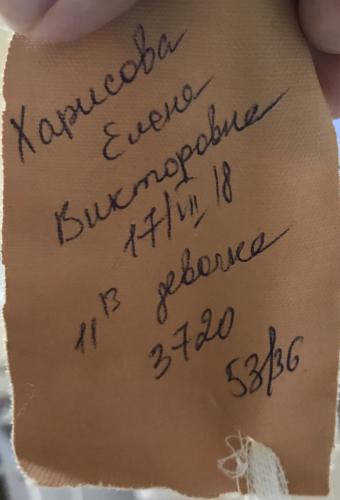 Харисова
Елена
Викторовна
17/VII 18
11 13 девочка
3720
53/36